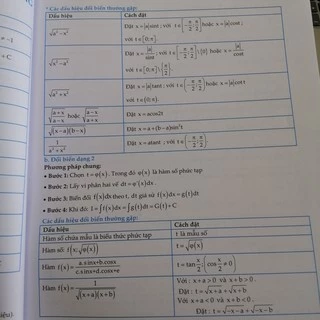 * Các dấu hiệu đổi biến thường gặp:
Dấu hiệu Cách đặt
√(a² − x²) Đặt x = |a| sint ; với t ∈ [−π/2; π/2] hoặc x = |a| cost ;
với t ∈ [0; π].
√(x² − a²) Đặt x = |a|/sint ; với t ∈ [−π/2; π/2] \ {0} hoặc x = |a|/cost
với t ∈ [0; π] \ {π/2}.
√(x² + a²) Đặt x = |a| tant ; với t ∈ (−π/2; π/2) hoặc x = |a| cott
với t ∈ (0; π).
√((a+x)/(a−x)) hoặc √((a−x)/(a+x)) Đặt x = acos2t
√((x−a)(b−x)) Đặt x = a + (b−a)sin²t
1/(a²+x²) Đặt x = atant ; với t ∈ (−π/2; π/2).
b. Đổi biến dạng 2
Phương pháp chung:
• Bước 1: Chọn t = φ(x). Trong đó φ(x) là hàm số phức tạp
• Bước 2: Lấy vi phân hai vế dt = φ'(x)dx.
• Bước 3: Biến đổi f(x)dx theo t, dt giả sử f(x)dx = g(t)dt
• Bước 4: Khi đó: I = ∫f(x)dx = ∫g(t)dt = G(t) + C
Các dấu hiệu đổi biến thường gặp:
Dấu hiệu Cách đặt
Hàm số chứa mẫu là biểu thức phức tạp t là mẫu số
Hàm số: f(x; √φ(x)) t = √φ(x)
Hàm f(x) = (a.sinx + b.cosx)/(c.sinx + d.cosx + e) t = tan x/2; (cos x/2 ≠ 0)
Hàm f(x) = 1/√((x+a)(x+b)) Với : x + a > 0 và x + b > 0.
Đặt : t = √(x+a) + √(x+b)
Với x + a < 0 và x + b < 0.
Đặt : t = √(−x−a) + √(−x−b)